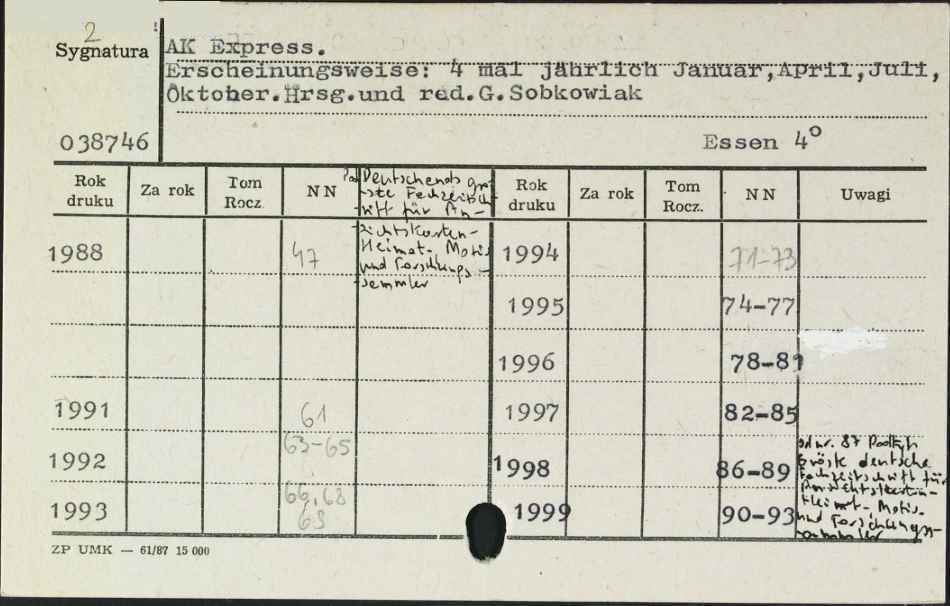 2
Sygnatura AK Express.
Erscheinungsweise: 4 mal jährlich Januar,April,Juli,
Oktober.Hrsg.und red.G.Sobkowiak
038746 Essen 4°
Rok druku Za rok Tom Rocz. NN Rok druku Za rok Tom Rocz. NN Uwagi
Deutschends grö-
ste Fachzeitsch-
rift für An-
sichtskarten-
Heimat- Motiv
und Forschungs-
sammler
1988 47 1994 71-73
1995 74-77
1996 78-81
1991 61 1997 82-85
1992 63-65 1998 86-89
1993 66,68
69 1999 90-93
od nr. 87 Podtyt.
Gröste deutsche
Fachzeitschrift für
Ansichtskarten-
Heimat- Motiv-
und Forschungs-
sammler
ZP UMK — 61/87 15 000